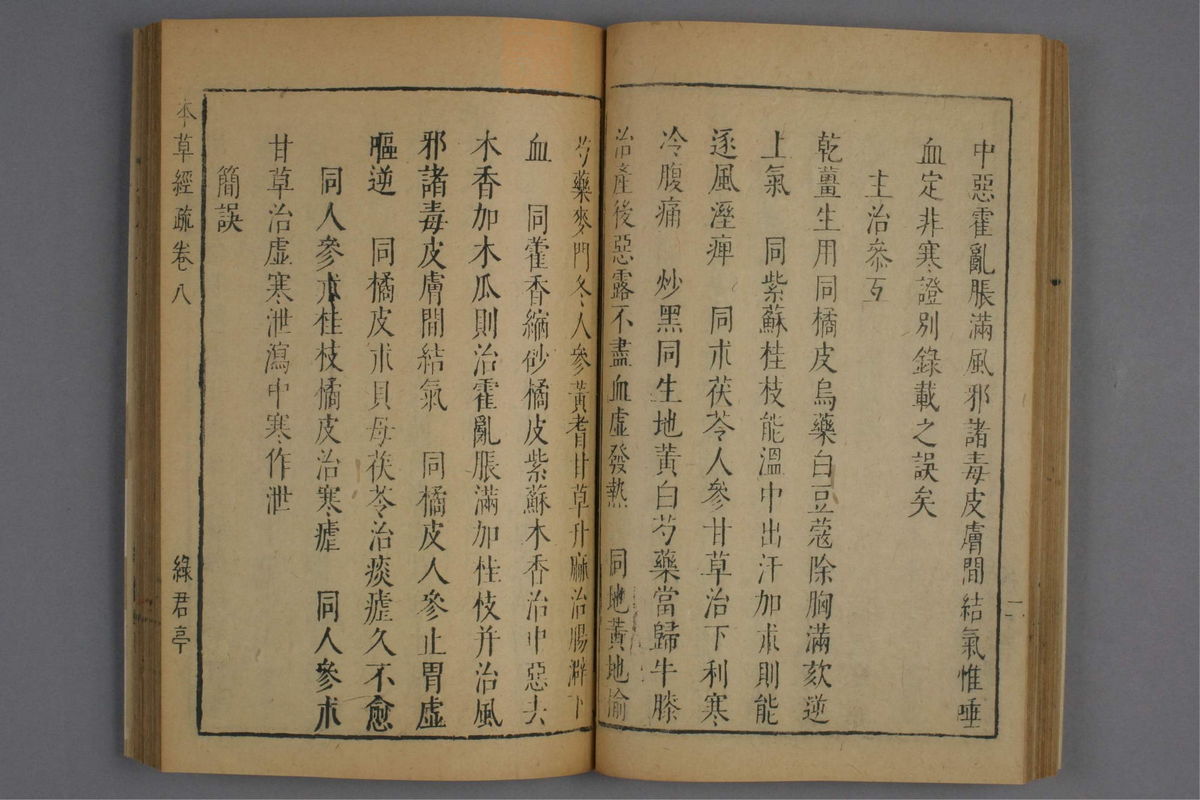 中惡霍亂脹滿風邪諸毒皮膚間結氣惟唾
血定非寒證別錄載之誤矣
主治叅互
乾薑生用同橘皮烏藥白豆蔻除胸滿欬逆
上氣 同紫蘇桂枝能溫中出汗加朮則能
逐風溼痺 同朮茯苓人參甘草治下利寒
冷腹痛 炒黑同生地黃白芍藥當歸牛膝
治產後惡露不盡血虛發熱 同地黃地榆
芍藥麥門冬人參黃耆甘草升麻治腸澼下
血 同藿香縮砂橘皮紫蘇木香治中惡去
木香加木瓜則治霍亂脹滿加桂枝并治風
邪諸毒皮膚間結氣 同橘皮人參止胃虛
嘔逆 同橘皮朮貝母茯苓治痰瘧久不愈
同人參朮桂枝橘皮治寒瘧 同人參朮
甘草治虛寒泄瀉中寒作泄
簡誤
本草經疏卷八 綠君亭